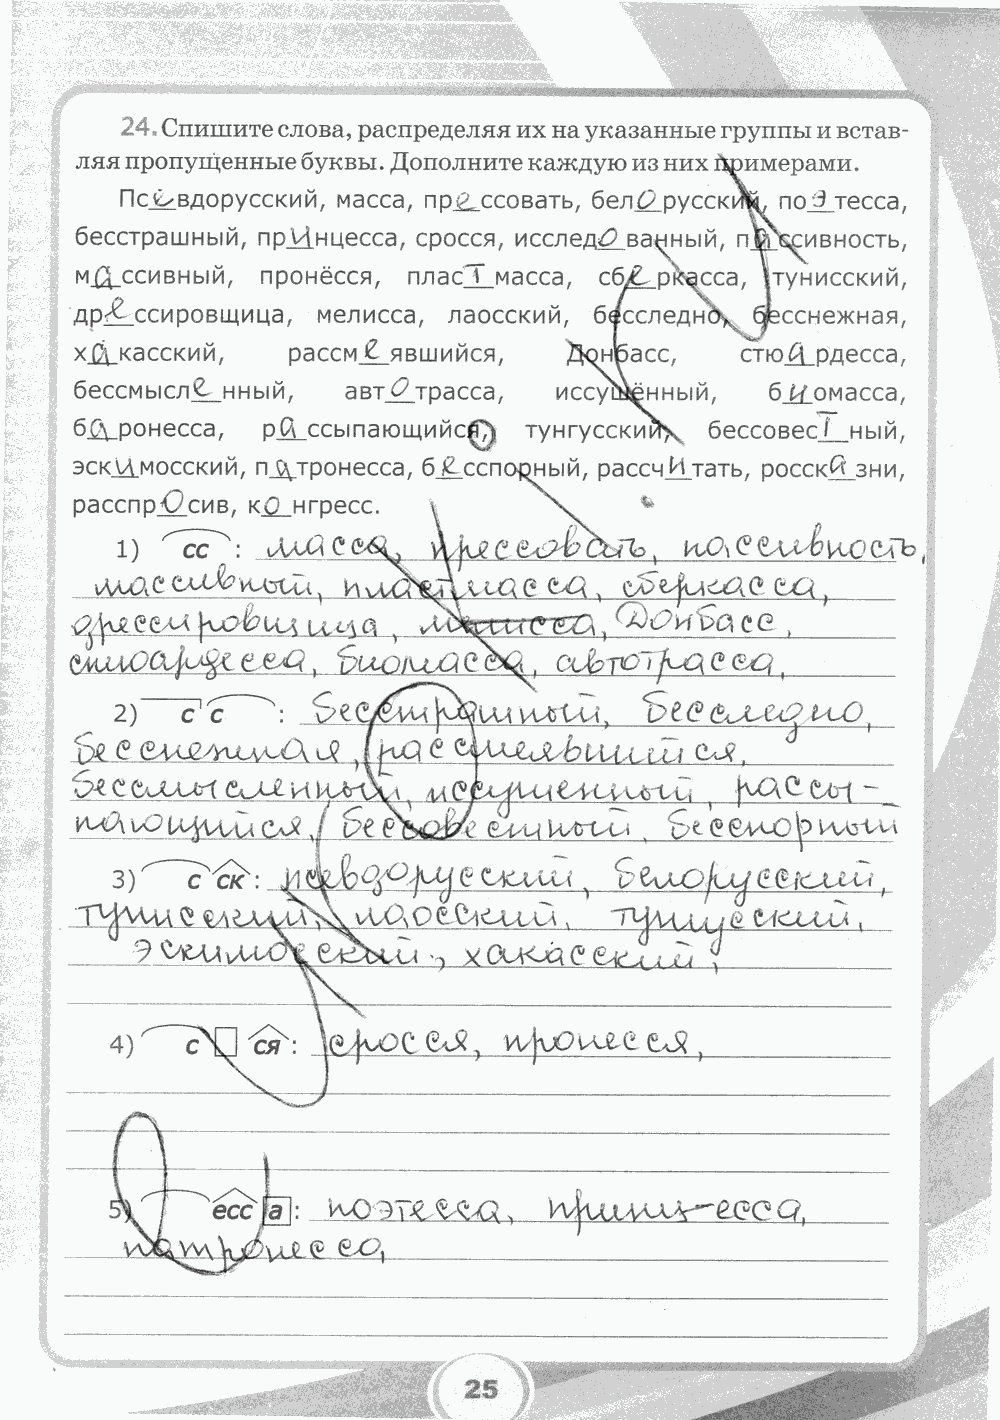 24. Спишите слова, распределяя их на указанные группы и встав-
ляя пропущенные буквы. Дополните каждую из них примерами.
Псевдорусский, масса, прессовать, белорусский, поэтесса,
бесстрашный, принцесса, сросся, исследованный, пассивность,
массивный, пронёсся, пластмасса, сберкасса, тунисский,
дрессировщица, мелисса, лаосский, бесследно, бесснежная,
хакасский, рассмеявшийся, Донбасс, стюардесса,
бессмысленный, автотрасса, иссушённый, биомасса,
баронесса, рассыпающийся, тунгусский, бессовестный,
эскимосский, патронесса, бесспорный, рассчитать, россказни,
расспросив, конгресс.
1) сс : масса, прессовать, пассивность,
массивный, пластмасса, сберкасса,
дрессировщица, мелисса, Донбасс,
стюардесса, биомасса, автотрасса,
2) с с : бесстрашный, бесследно,
бесснежная, рассмеявшийся,
бессмысленный, иссушенный, рассы-
пающийся, бессовестный, бесспорный
3) с ск : псевдорусский, белорусский,
тунисский, лаосский, тунгусский,
эскимосский, хакасский,
4) с ся : сросся, пронесся,
5) есс а : поэтесса, принц-есса,
патронесса,
25